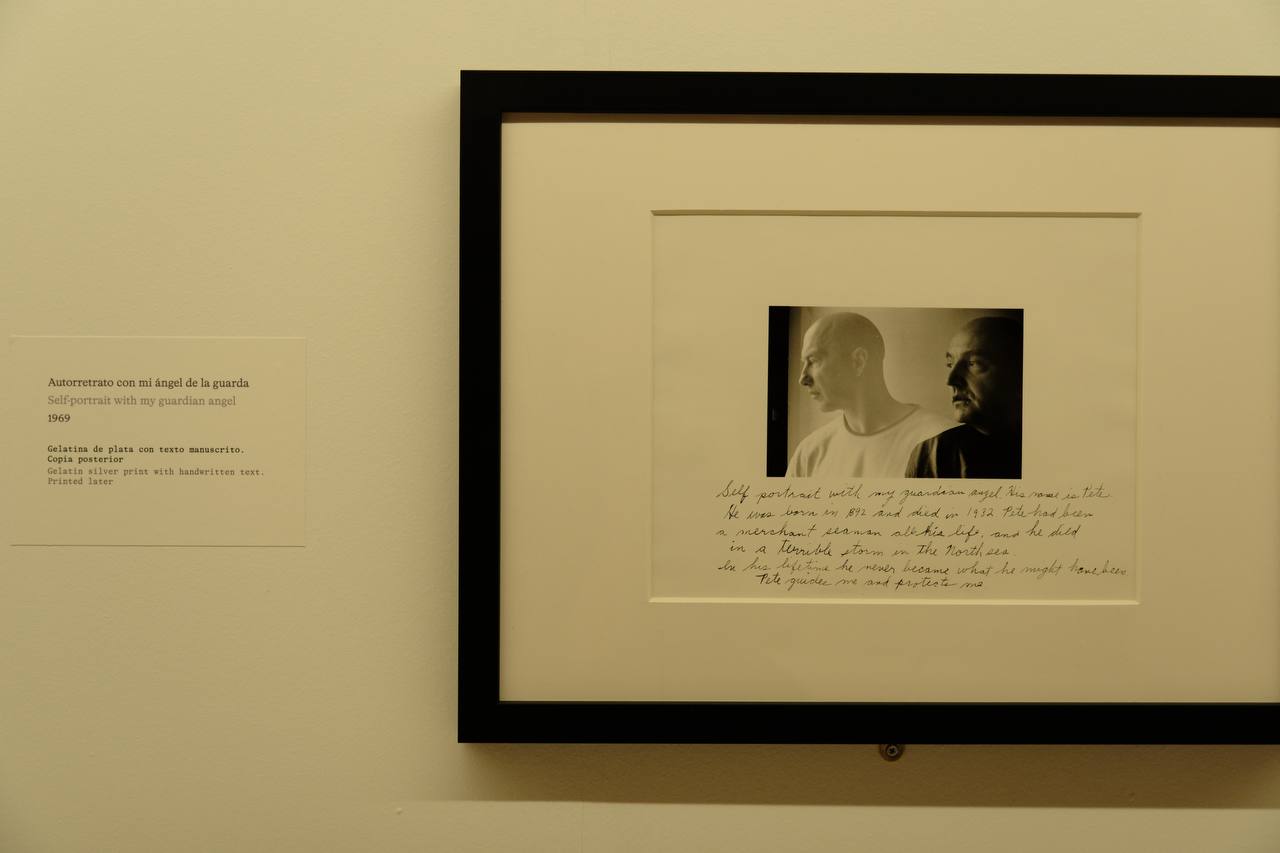 Autorretrato con mi ángel de la guarda
Self-portrait with my guardian angel
1969
Gelatina de plata con texto manuscrito.
Copia posterior
Gelatin silver print with handwritten text.
Printed later
Self portrait with my guardian angel. His name is Pete.
He was born in 1892 and died in 1932 Pete had been
a merchant seaman all his life, and he died
in a terrible storm in the North sea.
In his lifetime he never became what he might have been.
Pete guides me and protects me